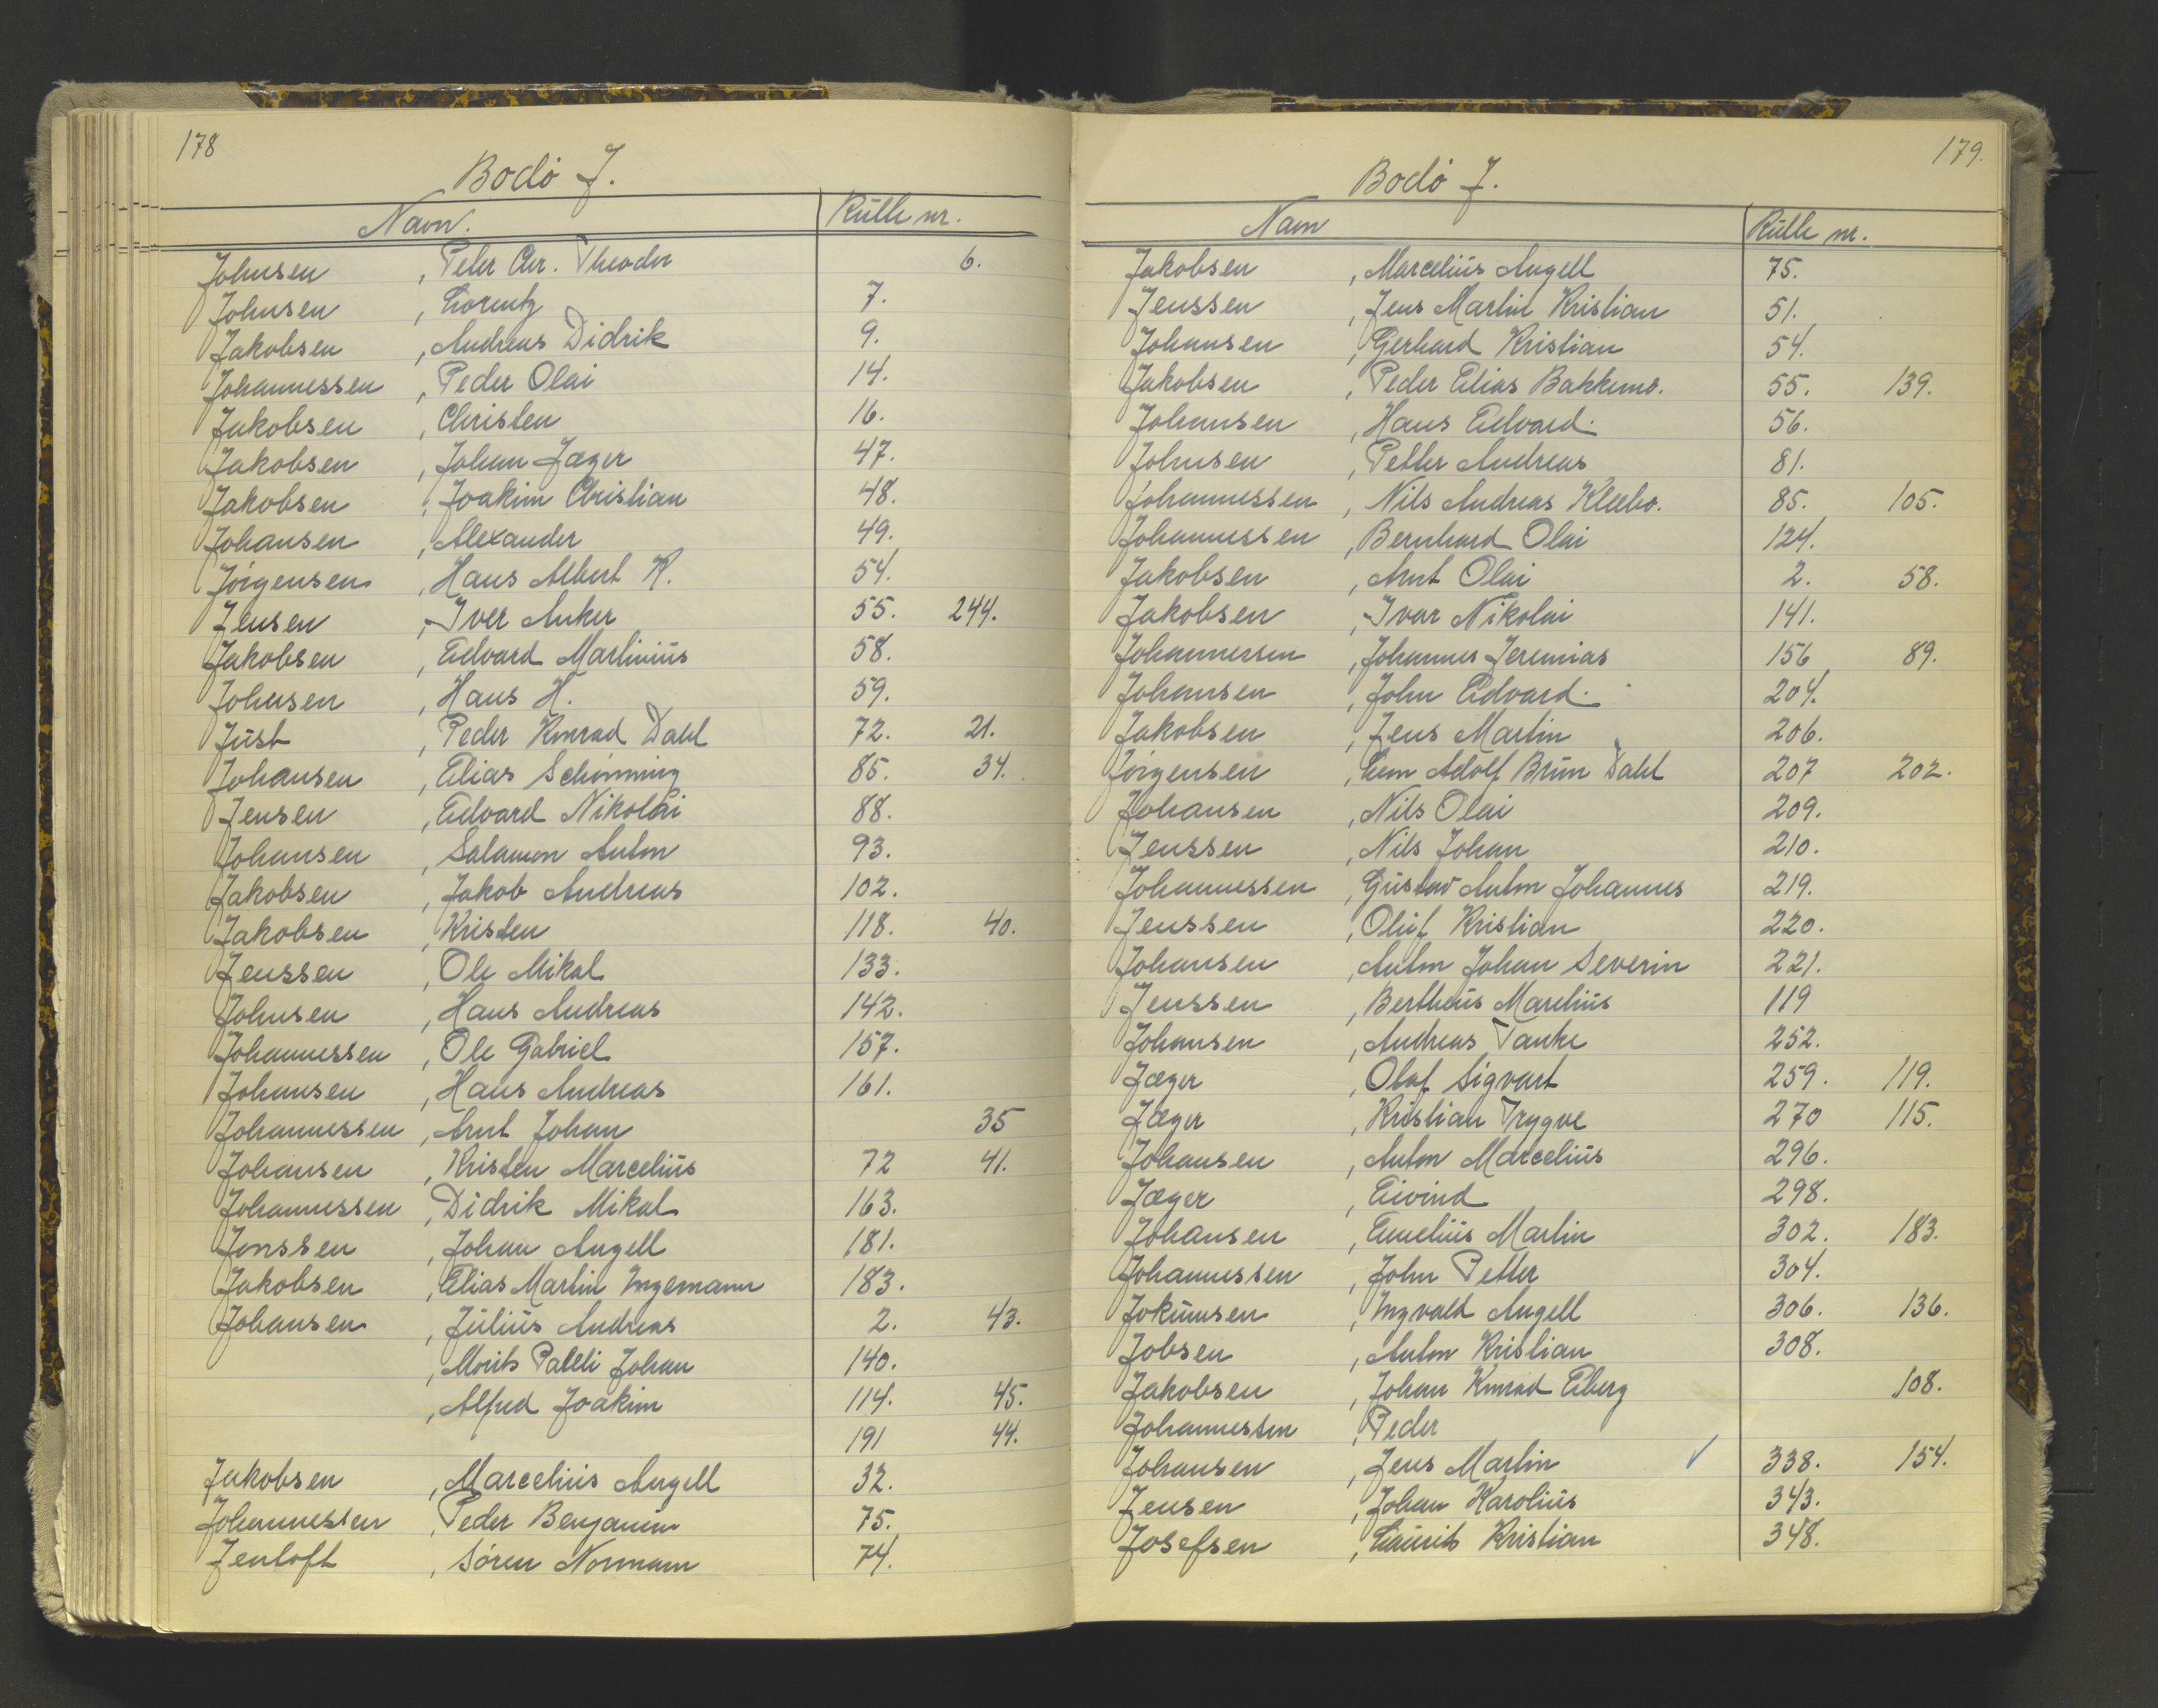 178
Bodö J.
Navn. Rulle nr.
Johnsen , Peter Chr. Theodor 6.
Johnsen , Lorentz 7.
Jakobsen , Andreas Didrik 9.
Johannessen , Peder Olai 14.
Jakobsen , Christen 16.
Jakobsen , Johan Jæger 47.
Jakobsen , Joakim Christian 48.
Johansen , Alexander 49.
Jörgensen , Hans Albert K. 54.
Jensen , Iver Anker 55. 244.
Jakobsen , Edvard Martinius 58.
Johnsen , Hans H. 59.
Just , Peder Konrad Dahl 72. 21.
Johansen , Elias Schönning 85. 34.
Jensen , Edvard Nikolai 88.
Johansen , Salamon Anton 93.
Jakobsen , Jakob Andreas 102.
Jakobsen , Kristen 118. 40.
Jenssen , Ole Mikal 133.
Johnsen , Hans Andreas 142.
Johannessen , Ole Gabriel 157.
Johansen , Hans Andreas 161.
Johannessen , Arnt Johan 35
Johansen , Kristen Marcelius 72 41.
Johannessen , Didrik Mikal 163.
Jonssen , Johan Angell 181.
Jakobsen , Elias Martin Ingemann 183.
Johansen , Julius Andreas 2. 43.
, Morits Johan 140.
, Alfred Joakim 114. 45.
191 44.
Jakobsen , Marcelius Angell 32.
Johannessen , Peder Benjamin 75.
Jentoft , Sören Normann 74.
179.
Bodö J.
Navn Rulle nr.
Jakobsen , Marcelius Angell 75.
Jenssen , Jens Martin Kristian 51.
Johansen , Gerhard Kristian 54.
Jakobsen , Peder Elias Bakkemo. 55. 139.
Johansen , Hans Edvard. 56.
Johnsen , Petter Andreas 81.
Johannessen , Nils Andreas Kleebo. 85. 105.
Johannessen , Bernhard Olai 124.
Jakobsen , Arnt Olai 2. 58.
Jakobsen , Ivar Nikolai 141.
Johannessen , Johannes Jeremias 156 89.
Johansen , John Edvard. 204.
Jakobsen , Jens Martin 206.
Jörgensen , Adolf Brun Dahl 207 202.
Johansen , Nils Olai 209.
Jenssen , Nils Johan 210.
Johannessen , Gustav Anton Johannes 219.
Jenssen , Oluf Kristian 220.
Johansen , Anton Johan Severin 221.
Jenssen , Bertheus Marelius 119
Johansen , Andreas Tanke 252.
Jæger , Olaf Sigvart 259. 119.
Jæger , Kristian Trygve 270 115.
Johansen , Anton Marcelius 296.
Jæger , Eivind 298.
Johansen , Emelius Martin 302. 183.
Johannessen , John Petter 304.
Jokumsen , Ingvald Angell 306. 136.
Jobsen , Anton Kristian 308.
Jakobsen , Johan Konrad Eiberg 108.
Johannessen , Peder
Johansen , Jens Martin ✓ 338. 154.
Jensen , Johan Karolius 343.
Josefsen , Laurits Kristian 348.